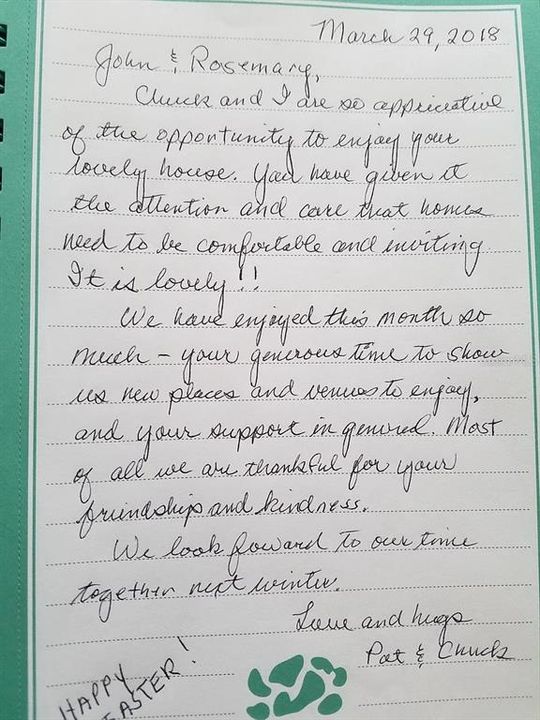 March 29, 2018
John & Rosemary,
Chuck and I are so appriciative
of the opportunity to enjoy your
lovely house. You have given it
the attention and care that homes
need to be comfortable and inviting.
It is lovely!!
We have enjoyed this month so
much - your generous time to show
us new places and venues to enjoy,
and your support in general. Most
of all we are thankful for your
friendship and kindness.
We look foward to our time
together next winter.
Love and hugs
Pat & Chuck
HAPPY
EASTER!